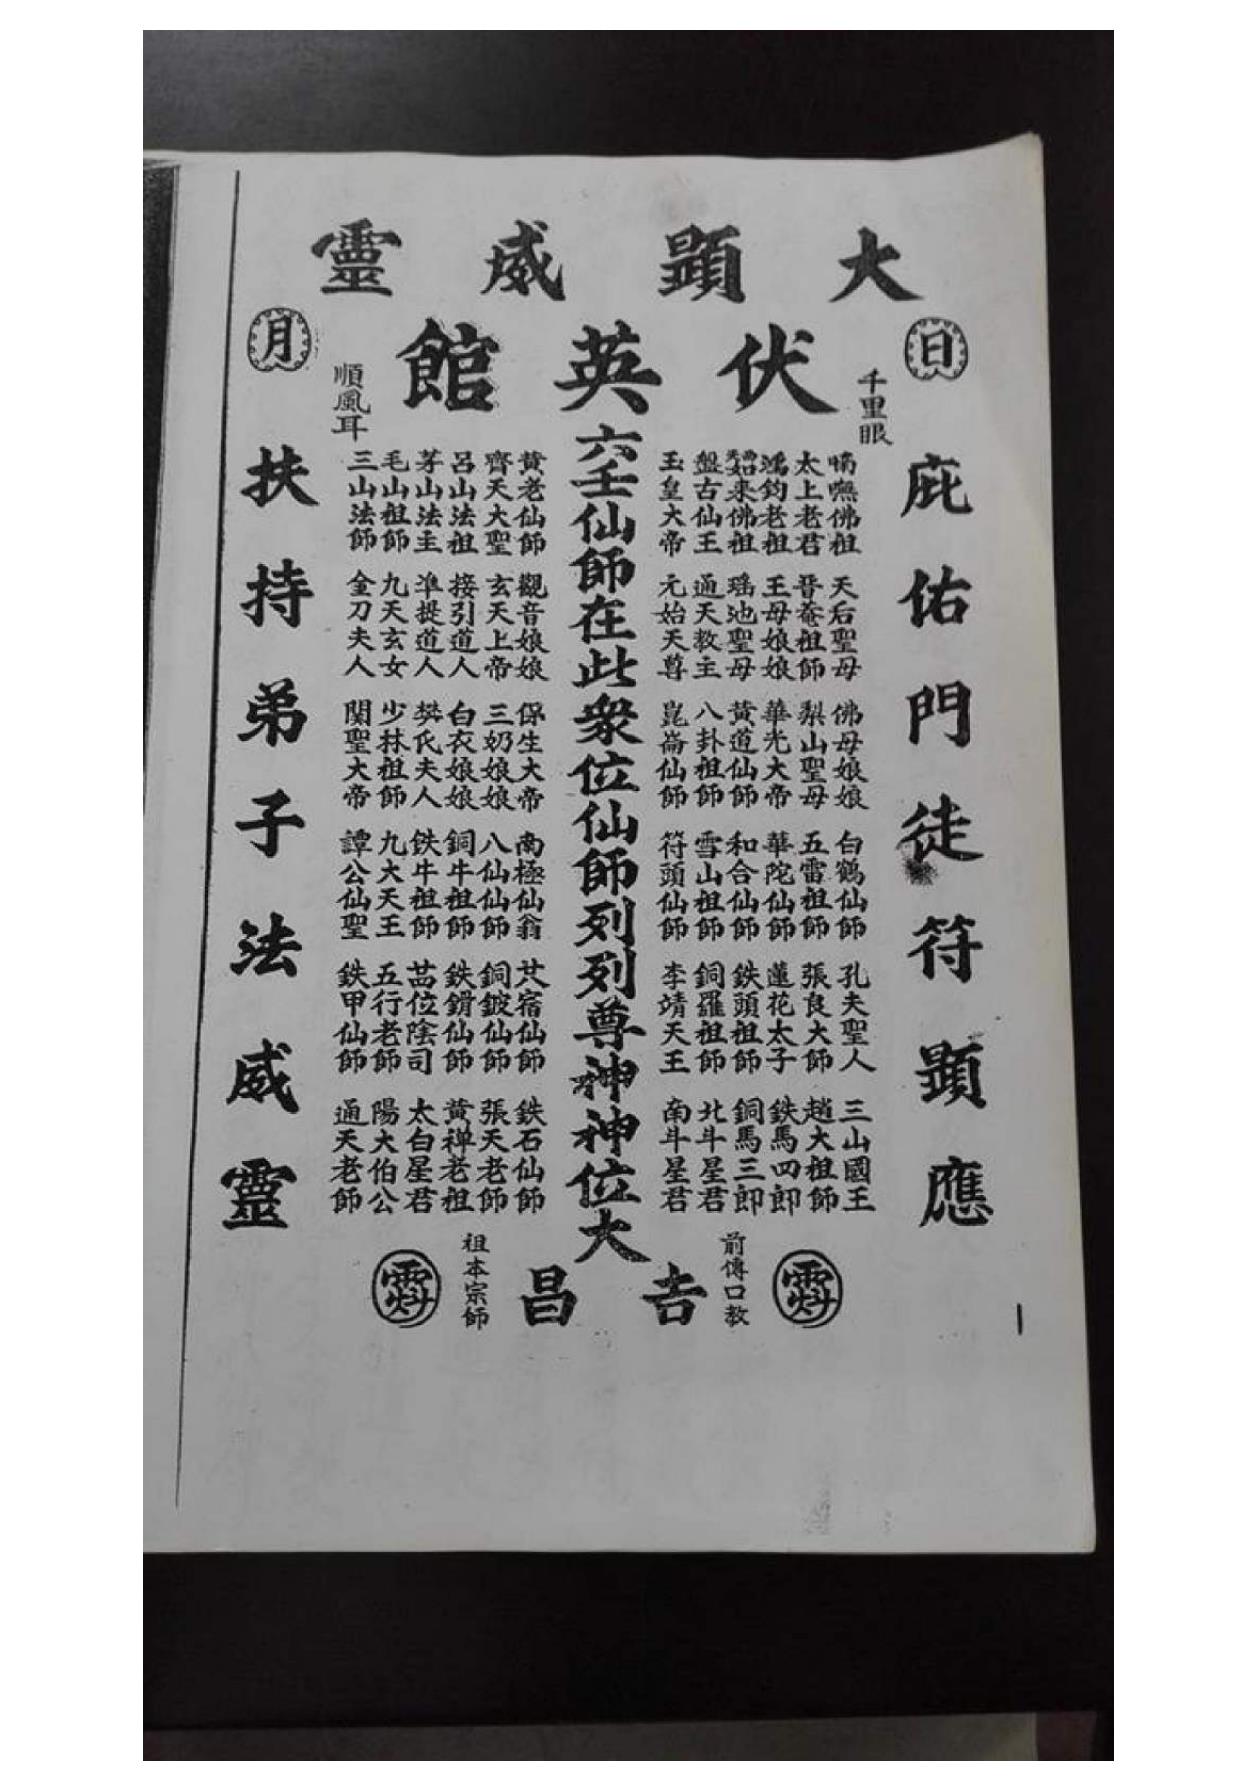 大顯威靈
伏英館
日
月
千里眼
順風耳
庇佑門徒符顯應
扶持弟子法威靈
六壬仙師在此衆位仙師列列尊神神位大
吉昌
嘛佛祖 太上老君 鴻鈞老祖 如來佛祖 盤古仙王 玉皇大帝
天后聖母 晉菴祖師 王母娘娘 瑶池聖母 通天教主 元始天尊
佛母娘娘 梨山聖母 華光大帝 黃道仙師 八卦祖師 崑崙仙師
白鶴仙師 五雷祖師 華陀仙師 和合仙師 雪山祖師 符頭仙師
孔夫聖人 張良大師 蓮花太子 鉄頭祖師 銅羅祖師 李靖天王
三山國王 趙大祖師 鉄馬四郎 銅馬三郎 北斗星君 南斗星君
黃老仙師 齊天大聖 呂山法祖 茅山法主 毛山祖師 三山法師
觀音娘娘 玄天上帝 接引道人 準提道人 九天玄女 金刀夫人
保生大帝 三奶娘娘 白衣娘娘 樊氏夫人 少林祖師 關聖大帝
南極仙翁 八仙仙師 銅牛祖師 鉄牛祖師 九大天王 譚公仙聖
宿仙師 銅鈸仙師 鉄仙師 位陰司 五行老師 鉄甲仙師
鉄石仙師 張天老師 黃禅老祖 太白星君 陽大伯公 通天老師
前傳口教
祖本宗師